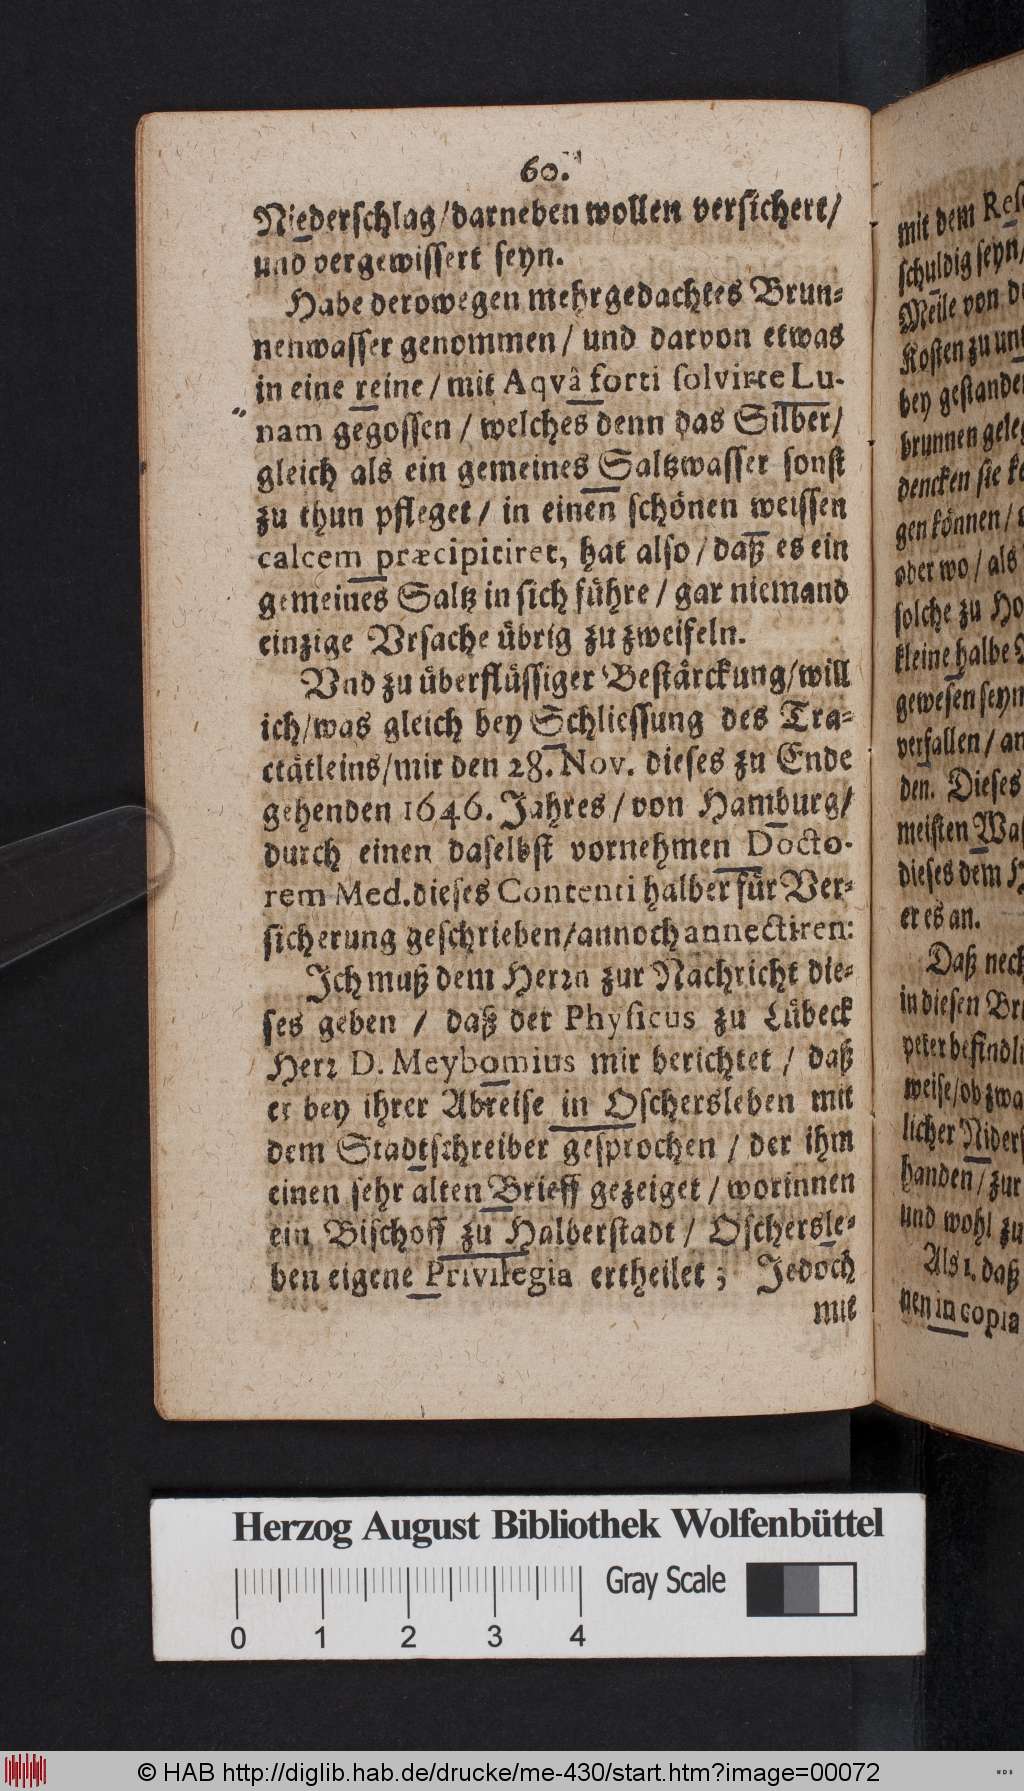 60.
Niederschlag/darneben wollen versichert/
und vergewissert seyn.
Habe derowegen mehrgedachtes Brun-
nenwasser genommen / und darvon etwas
in eine reine / mit Aqvâ forti solvirte Lu-
nam gegossen / welches denn das Silber/
gleich als ein gemeines Saltzwasser sonst
zu thun pfleget / in einen schönen weissen
calcem præcipitiret, hat also / daß es ein
gemeines Saltz in sich führe / gar niemand
einzige Vrsache übrig zu zweifeln.
Vnd zu überflüssiger Bestärckung/will
ich/was gleich bey Schliessung des Tra-
ctätleins/mit den 28. Nov. dieses zu Ende
gehenden 1646. Jahres / von Hamburg/
durch einen daselbst vornehmen Docto-
rem Med. dieses Contenti halber für Ver-
sicherung geschrieben/annoch annectiren:
Ich muß dem Herrn zur Nachricht die-
ses geben / daß der Physicus zu Lübeck
Herr D. Meybomius mir berichtet / daß
er bey ihrer Abreise in Oschersleben mit
dem Stadtschreiber gesprochen / der ihm
einen sehr alten Brieff gezeiget / worinnen
ein Bischoff zu Halberstadt / Oschersle-
ben eigene Privilegia ertheilet ; Jedoch
mit
mit dem
schuldig seyn/
Meile von
Kosten zu
bey
brunnen
dencken sie
gen können /
oder wo / als
solche zu
kleine halbe
gewesen seyn
verfallen / an
den. Dieses
meisten
dieses dem
er es an.
Daß
in diesen
peter
weise/ob
licher
handen / zur
und wohl zu
Als 1. daß
nen in copia
Herzog August Bibliothek Wolfenbüttel
Gray Scale
0 1 2 3 4
© HAB http://diglib.hab.de/drucke/me-430/start.htm?image=00072